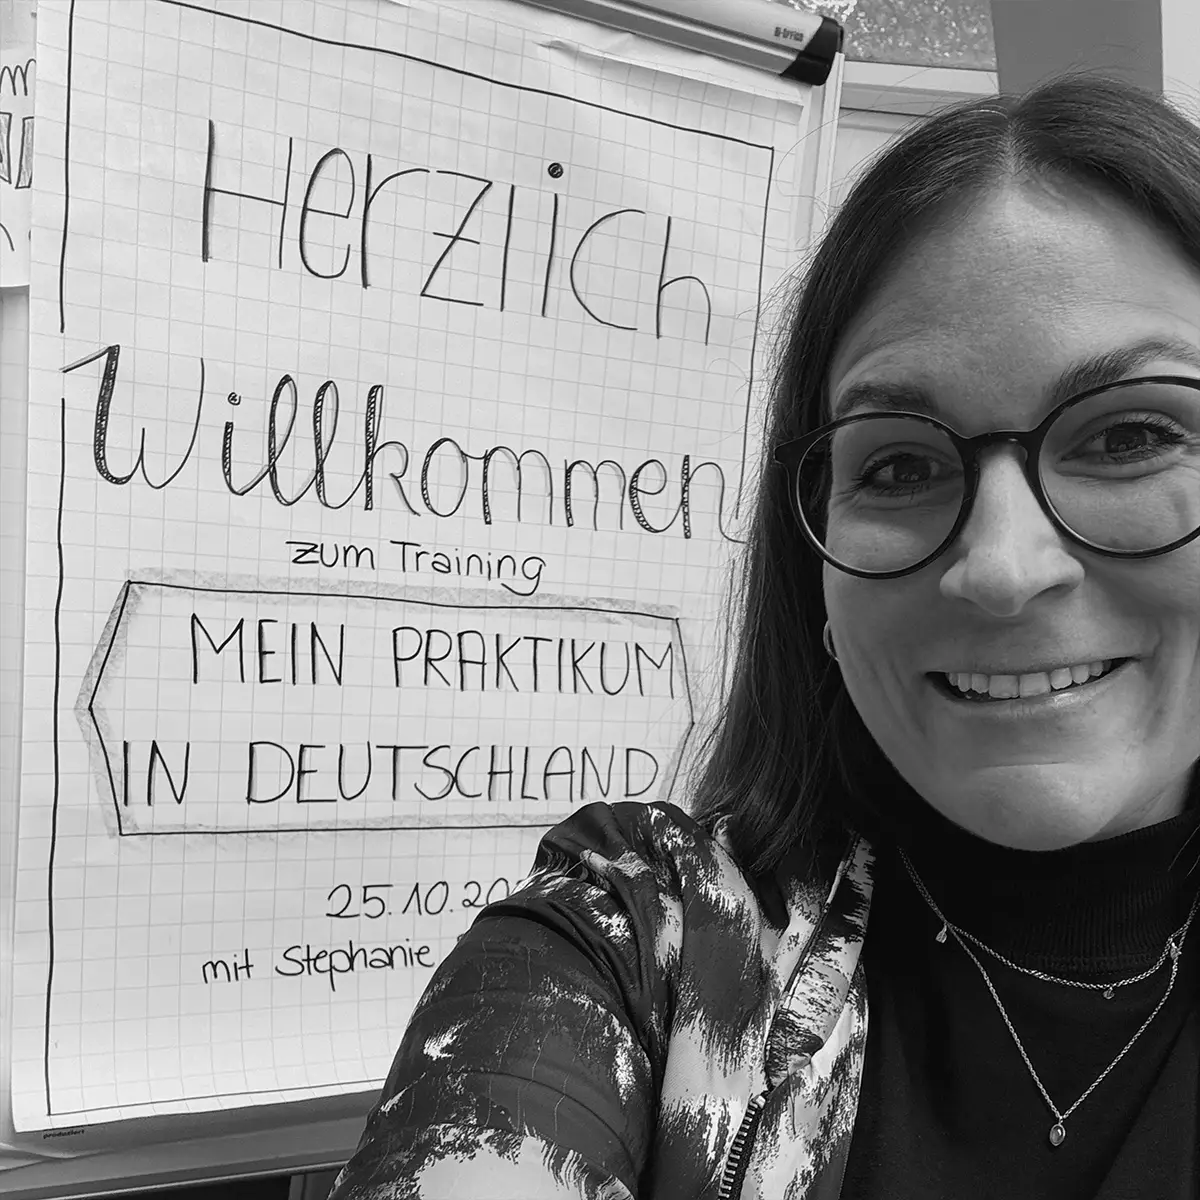 Bi-Office
Herzlich
Willkommen
zum Training
MEIN PRAKTIKUM
IN DEUTSCHLAND
25.10.20
mit Stephanie